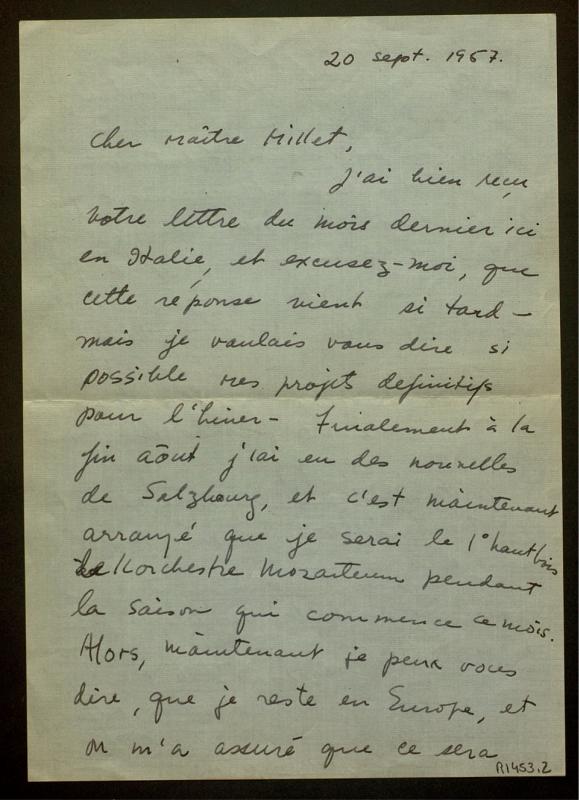 20 sept. 1967.
Cher Maître Millet,
J'ai bien reçu
votre lettre du mois dernier ici
en Italie, et excusez-moi, que
cette réponse vient si tard –
mais je voulais vous dire si
possible mes projets definitifs
pour l'hiver – Finalement à la
fin aôut j'ai eu des nouvelles
de Salzbourg, et c'est maintenant
arrangé que je serai le 1° hautbois
de l'orchestre Mozarteum pendant
la saison qui commence ce mois.
Alors, maintenant je peux vous
dire, que je reste en Europe, et
on m'a assuré que ce sera
R1453.2